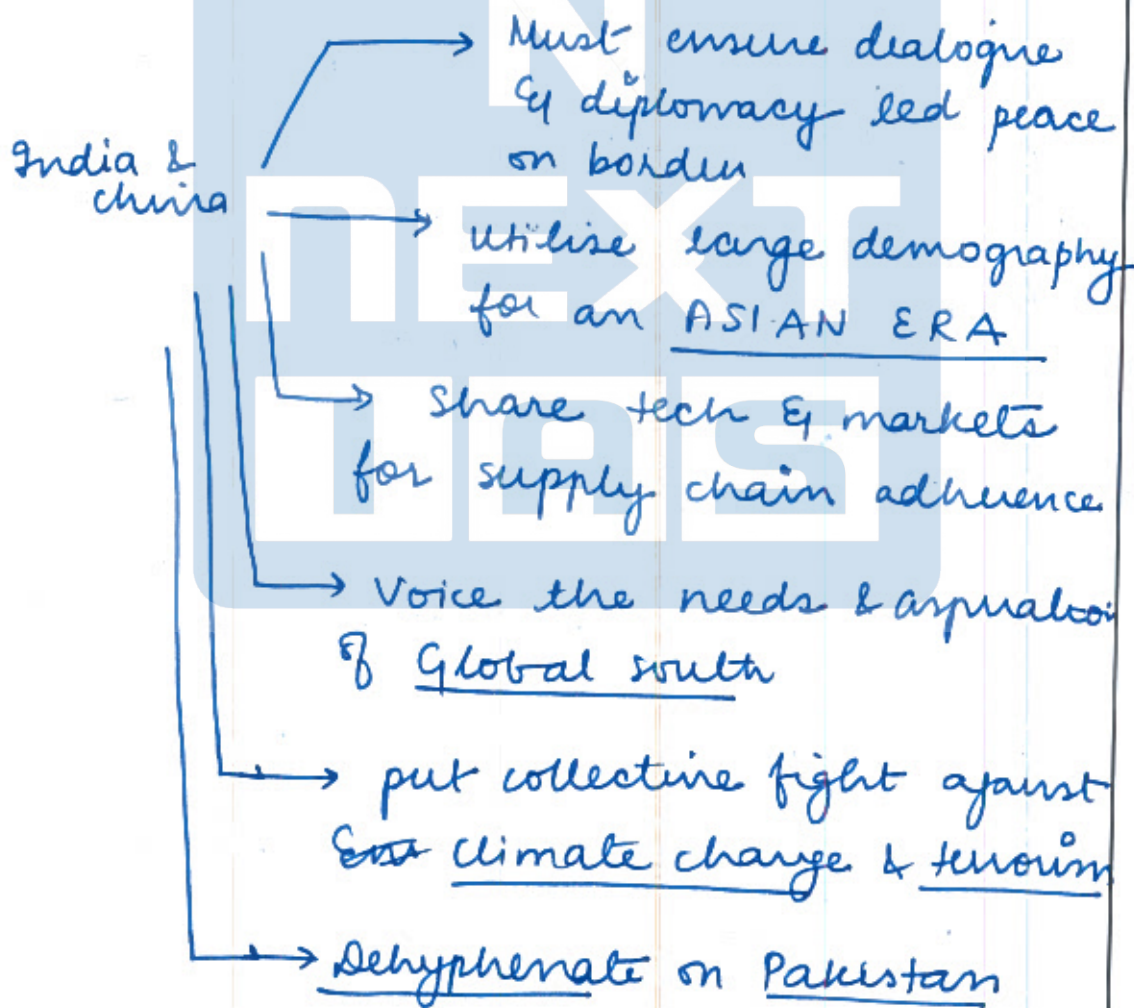 Must ensure dialogue
& diplomacy led peace
on border
India &
china
Utilise large demography
for an ASIAN ERA
Share tech & markets
for supply chain adherence
Voice the needs & aspiration
of Global south
put collective fight against
climate change & terrorism
Dehyphenate on Pakistan
NEXT
IAS